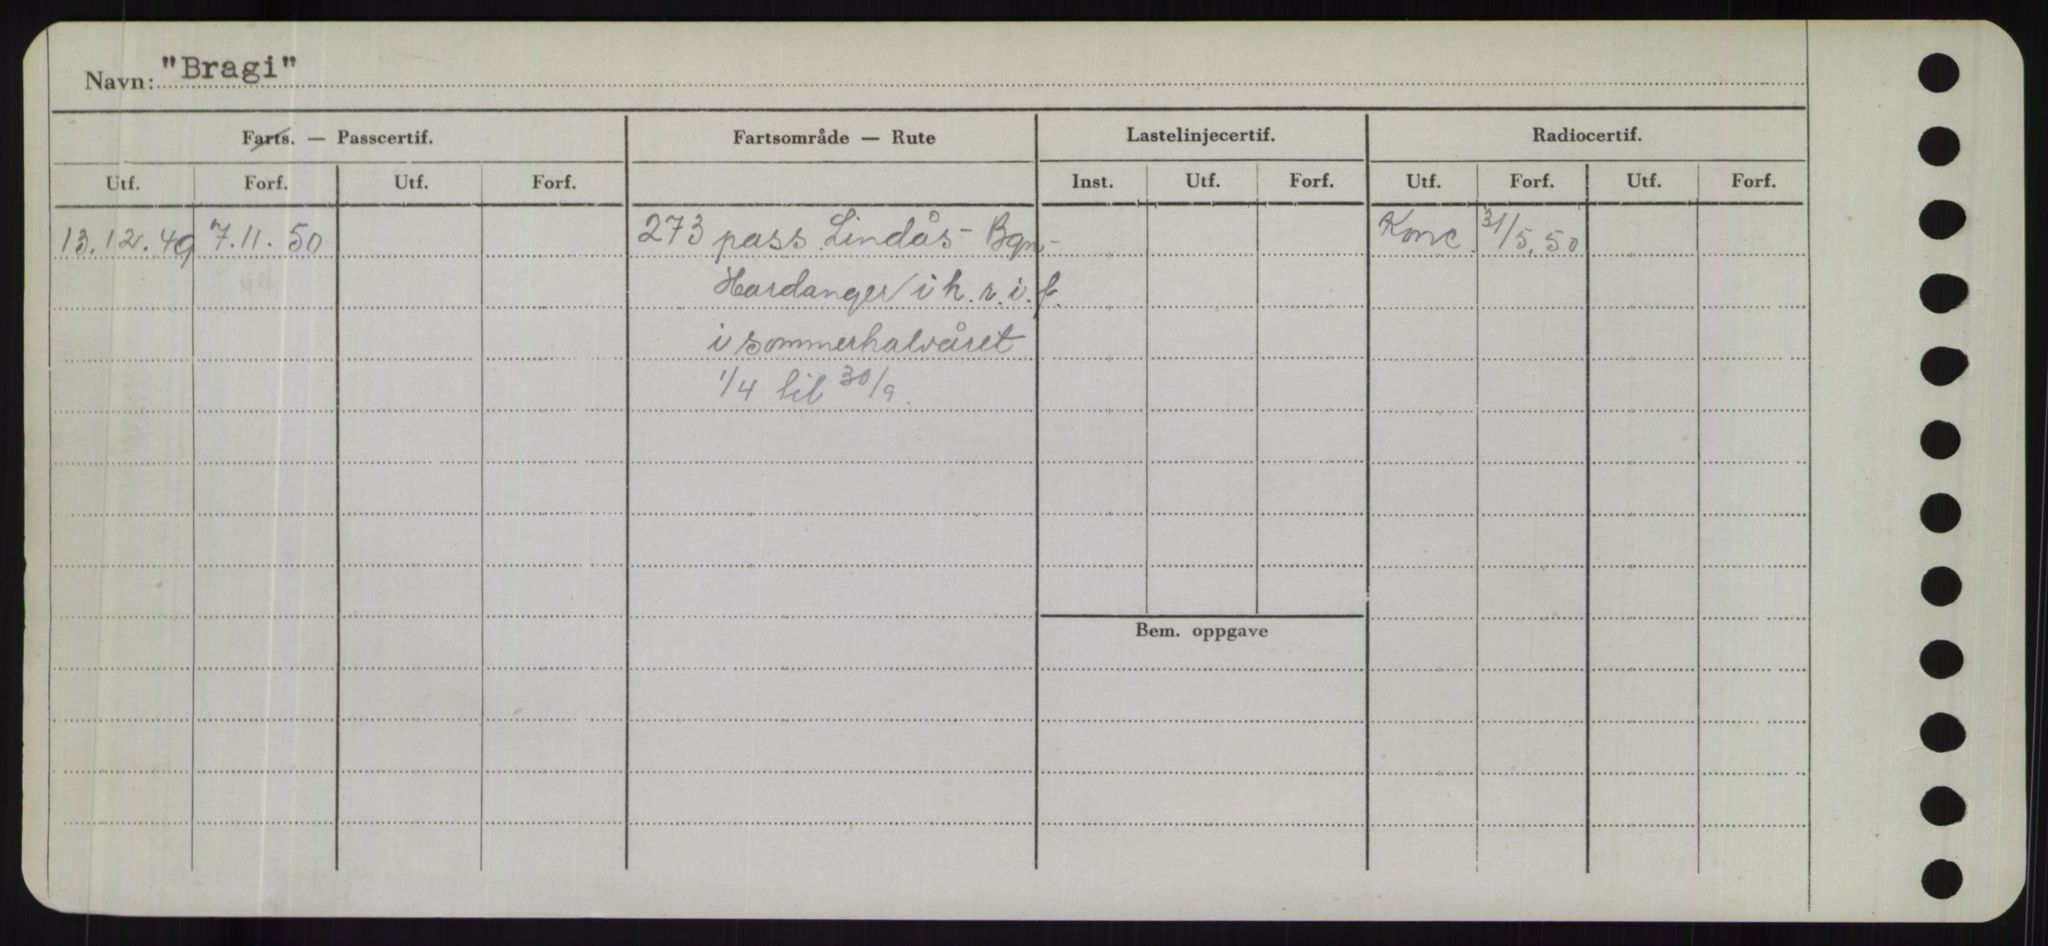 Navn: "Bragi"
Farts. — Passcertif. Fartsområde — Rute Lastelinjecertif. Radiocertif.
Utf. Forf. Utf. Forf. Inst. Utf. Forf. Utf. Forf. Utf. Forf.
13.12.49 7.11.50 273 pass Lindås - Bgn- Konc. 31/5.50
Hardanger i h. r. i. f.
i sommerhalvåret
1/4 til 30/9.
Bem. oppgave